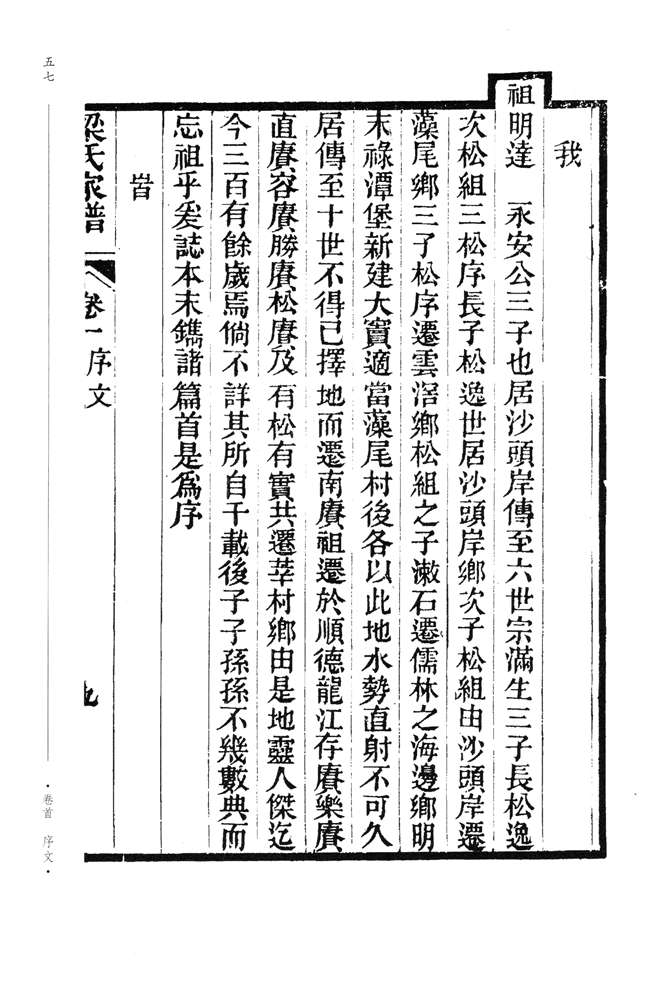 我
祖明達　永安公三子也居沙頭岸傳至六世宗滿生三子長松逸
次松組三松序長子松逸世居沙頭岸鄉次子松組由沙頭岸遷
藻尾鄉三子松序遷雲滘鄉松組之子漱石遷儒林之海邊鄉明
末祿潭堡新建大竇適當藻尾村後各以此地水勢直射不可久
居傳至十世不得已擇地而遷南賡祖遷於順德龍江存賡樂賡
直賡容賡勝賡松賡及有松有實共遷莘村鄉由是地靈人傑迄
今三百有餘歲焉倘不詳其所自千載後子子孫孫不幾數典而
忘祖乎爰誌本末鐫諸篇首是爲序
昔
梁氏家譜　卷一序文　九
五七
·卷首　序文·